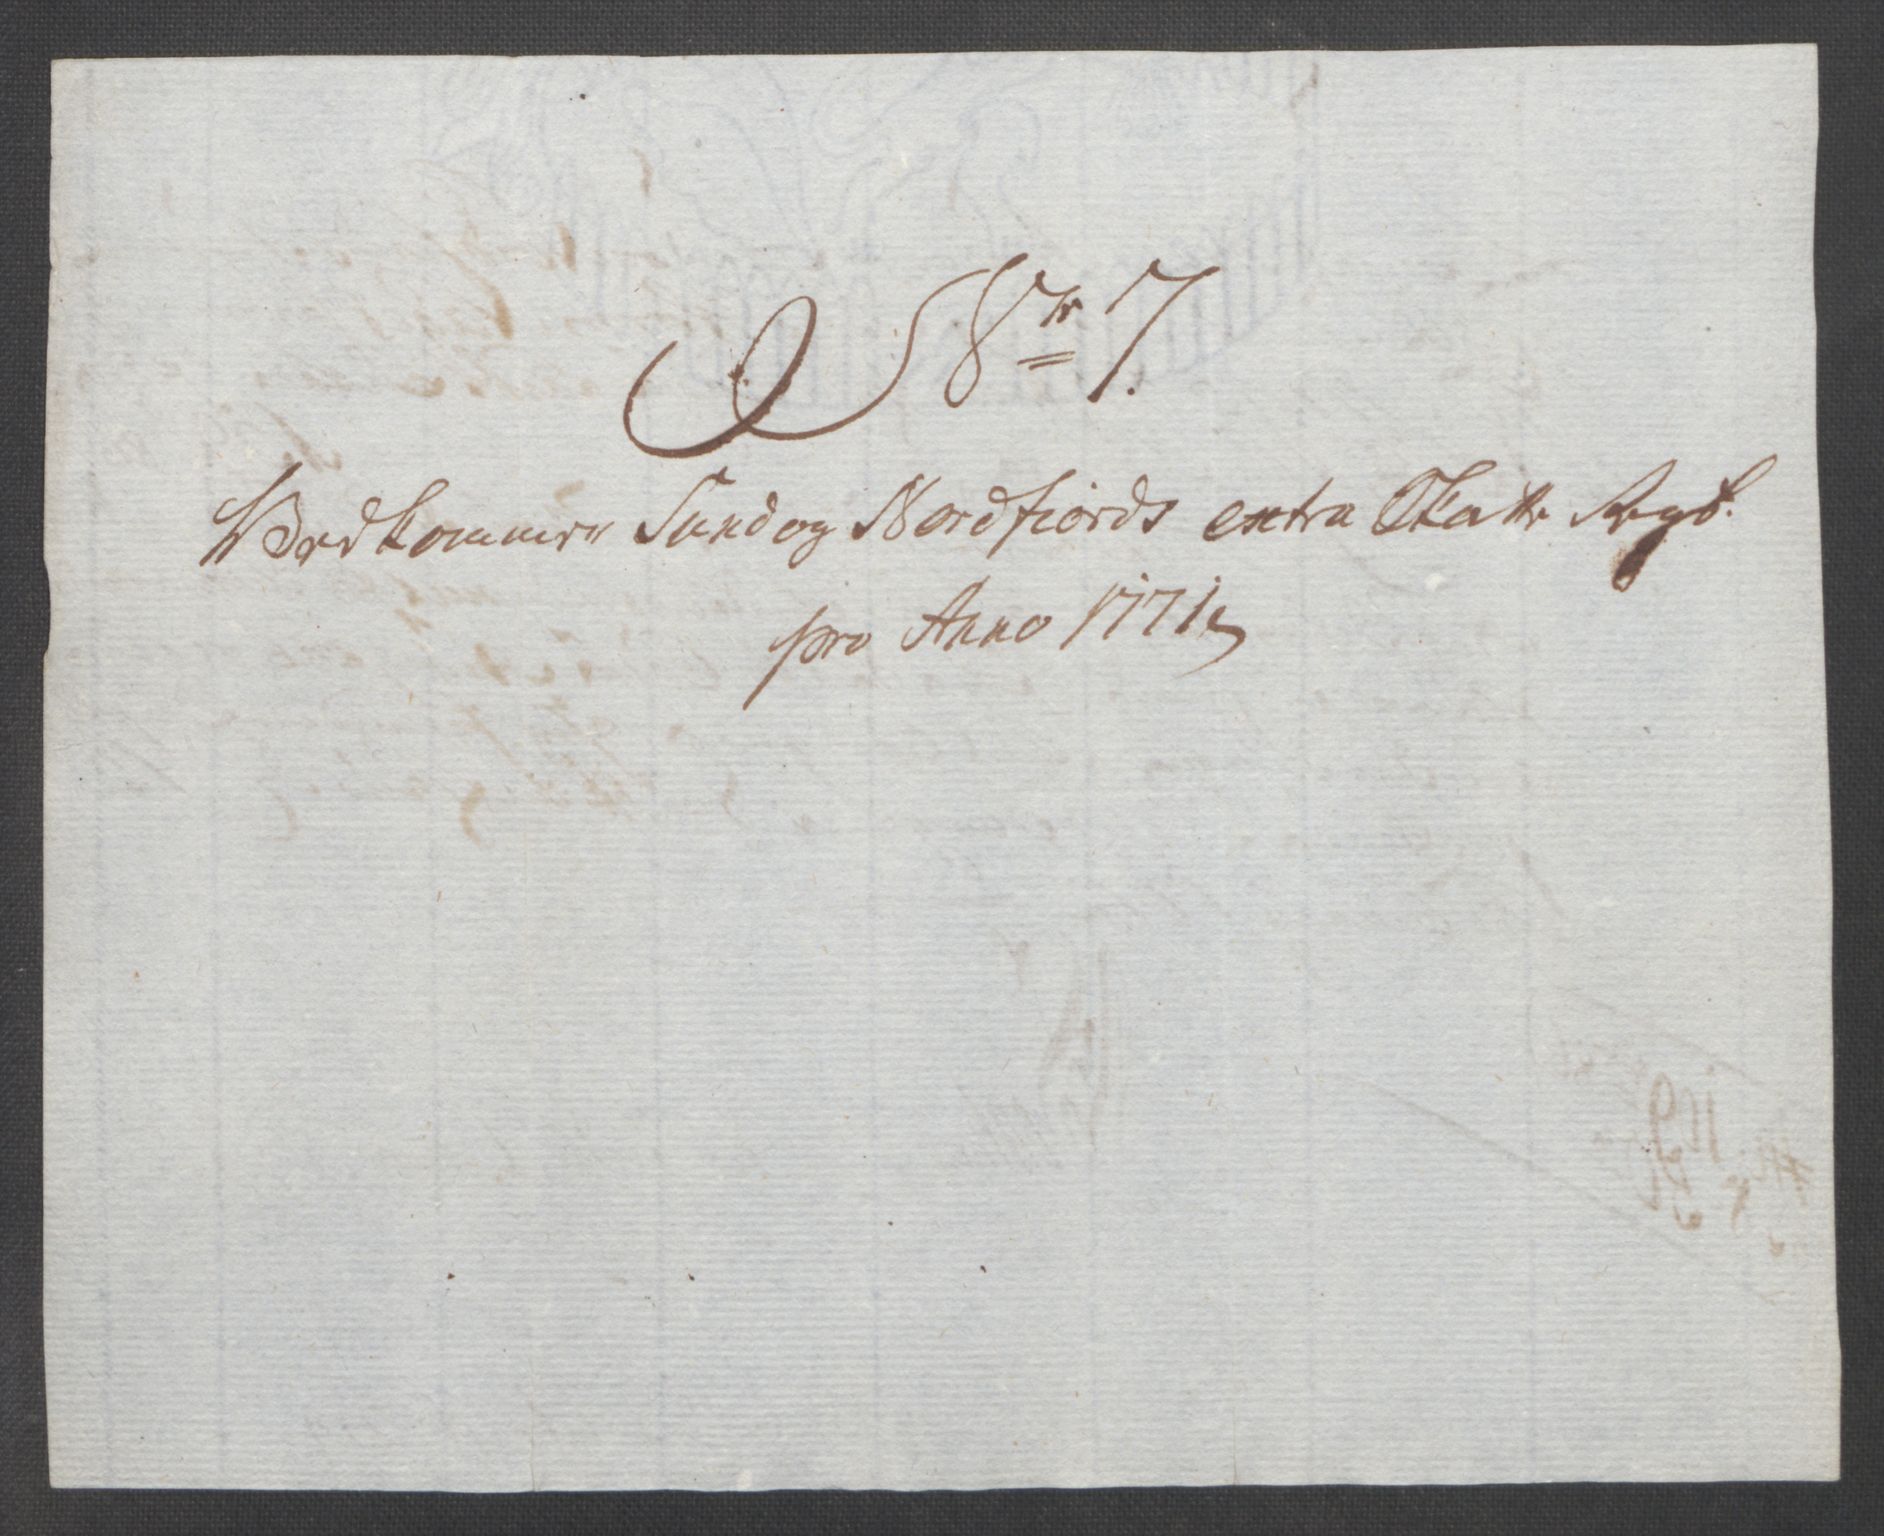 Nr 7.
Vedkommer Sundog Nordfiords extra Skatte Regb.
pro Anno 1771